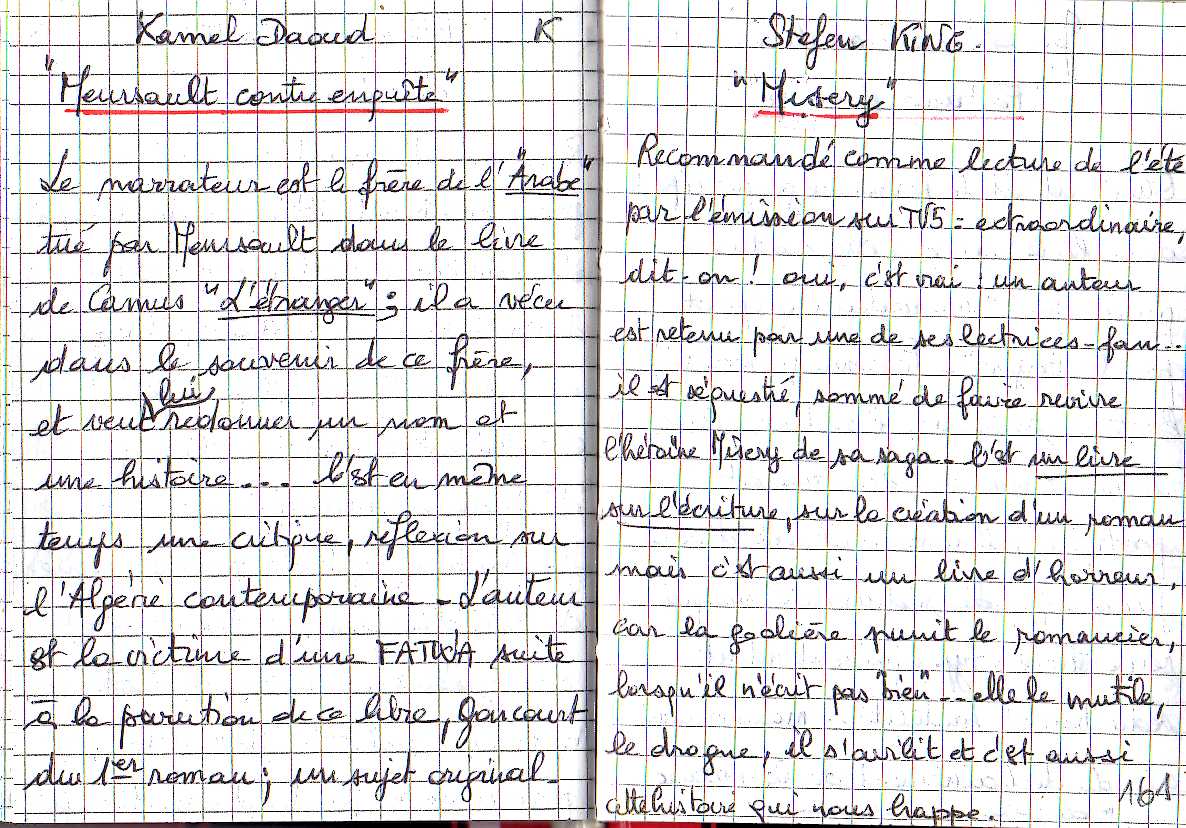 Kamel Daoud K
"Meursault contre enquête"
Le narrateur est le frère de l'"Arabe"
tué par Meursault dans le livre
de Camus "L'étranger" ; il a vécu
dans le souvenir de ce frère,
et veut lui redonner un nom et
une histoire... C'est en même
temps une critique, réflexion sur
l'Algérie contemporaine - L'auteur
est la victime d'une FATWA suite
à la parution de ce libre, goncourt
du 1er roman ; un sujet original -
Stefen KING.
"Misery"
Recommandé comme lecture de l'été
par l'émission sur TV5 = extraordinaire,
dit-on ! oui, c'est vrai ! un auteur
est retenu par une de ses lectrices-fan...
il est séquestré, sommé de faire revivre
l'héroïne Misery de sa saga. C'est un livre
sur l'écriture, sur la création d'un roman
mais c'est aussi un livre d'horreur,
car la geôlière punit le romancier,
lorsqu'il n'écrit pas "bien"... elle le mutile,
le drogue, il s'avilit et c'est aussi
cette histoire qui nous happe.
161